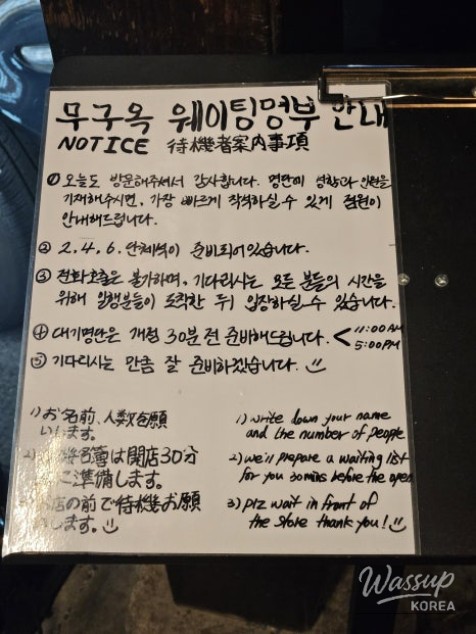 무구옥 웨이팅명부 안내
NOTICE 待機者案内事項
① 오늘도 방문해주셔서 감사합니다. 명단에 성함과 인원을
기재해주시면, 가장 빠르게 착석하실 수 있게 점원이
안내해드립니다.
② 2. 4. 6. 단체석이 준비되어있습니다.
③ 전화호출은 불가하며, 기다리시는 모든 분들의 시간을
위해 일행분들이 도착한 뒤 입장하실 수 있습니다.
④ 대기명단은 개점 30분 전 준비해드립니다. < 11:00AM
5:00PM
⑤ 기다리시는 만큼 잘 준비하겠습니다.
1) お名前、人数を願
いします。
名簿は開店30分
に準備します。
店の前で待機お願
します。
1) write down your name
and the number of people
2) we'll prepare a waiting list
for you 30mins before the open
3) plz wait in front of
the store thank you!
Wassup
KOREA